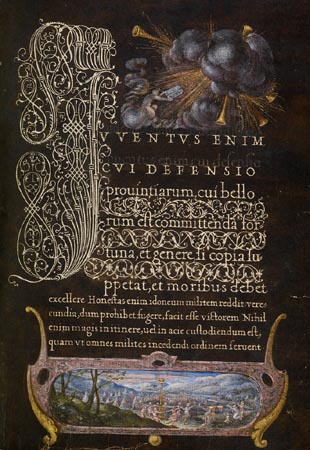 IVVENTVS ENIM
CVI DEFENSIO
prouintiarum, cui bello
rum est committenda for
tuna, et genere si copia su
ppetat, et moribus debet
excellere Honestas enim idoneum militem reddit: vere
cundia, dum prohibet fugere, facit esse victorem Nihil
enim magis in itinere, uel in acie custodiendum est,
quam vt omnes milites incedendi ordinem seruent